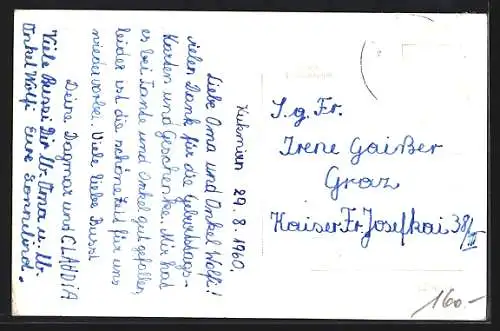 29. 8. 1960.
Liebe Oma und Onkel Wolfi!
vielen Dank für die Geburtstags-
Karten und Geschenke. Mir hat
es bei Tante und Onkel gut gefallen,
leider ist die schöne Zeit für uns
wieder vorbei. Viele liebe Bussi
Deine Dagmar und CLAUDIA
Viele Bussi Dir lb. Oma u. lb.
Onkel Wolfi Eure
S. g. Fr.
Irene Gaißer
Graz
Kaiser Fr. Josefkai 38/II
160.-